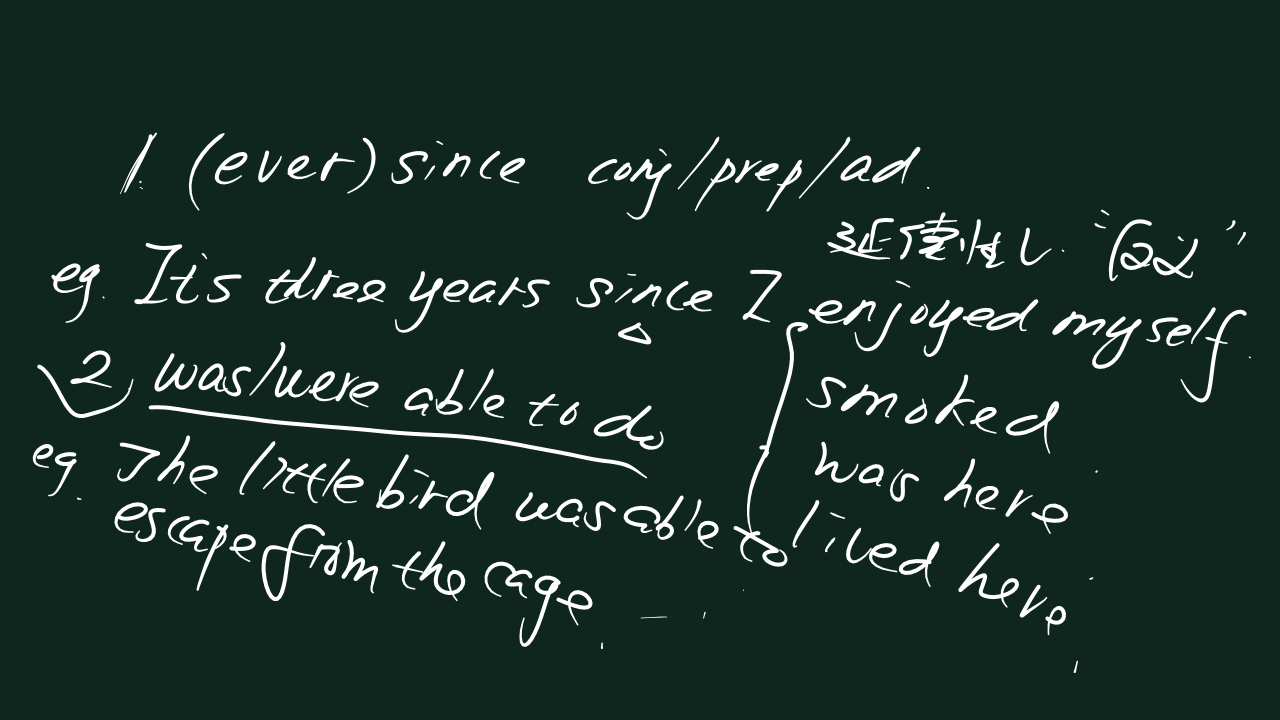 1. (ever) since conj/prep/ad.
eg. It's three years since I enjoyed myself.
smoked
was here
lived here
2 was/were able to do
eg. The little bird was able to
escape from the cage.